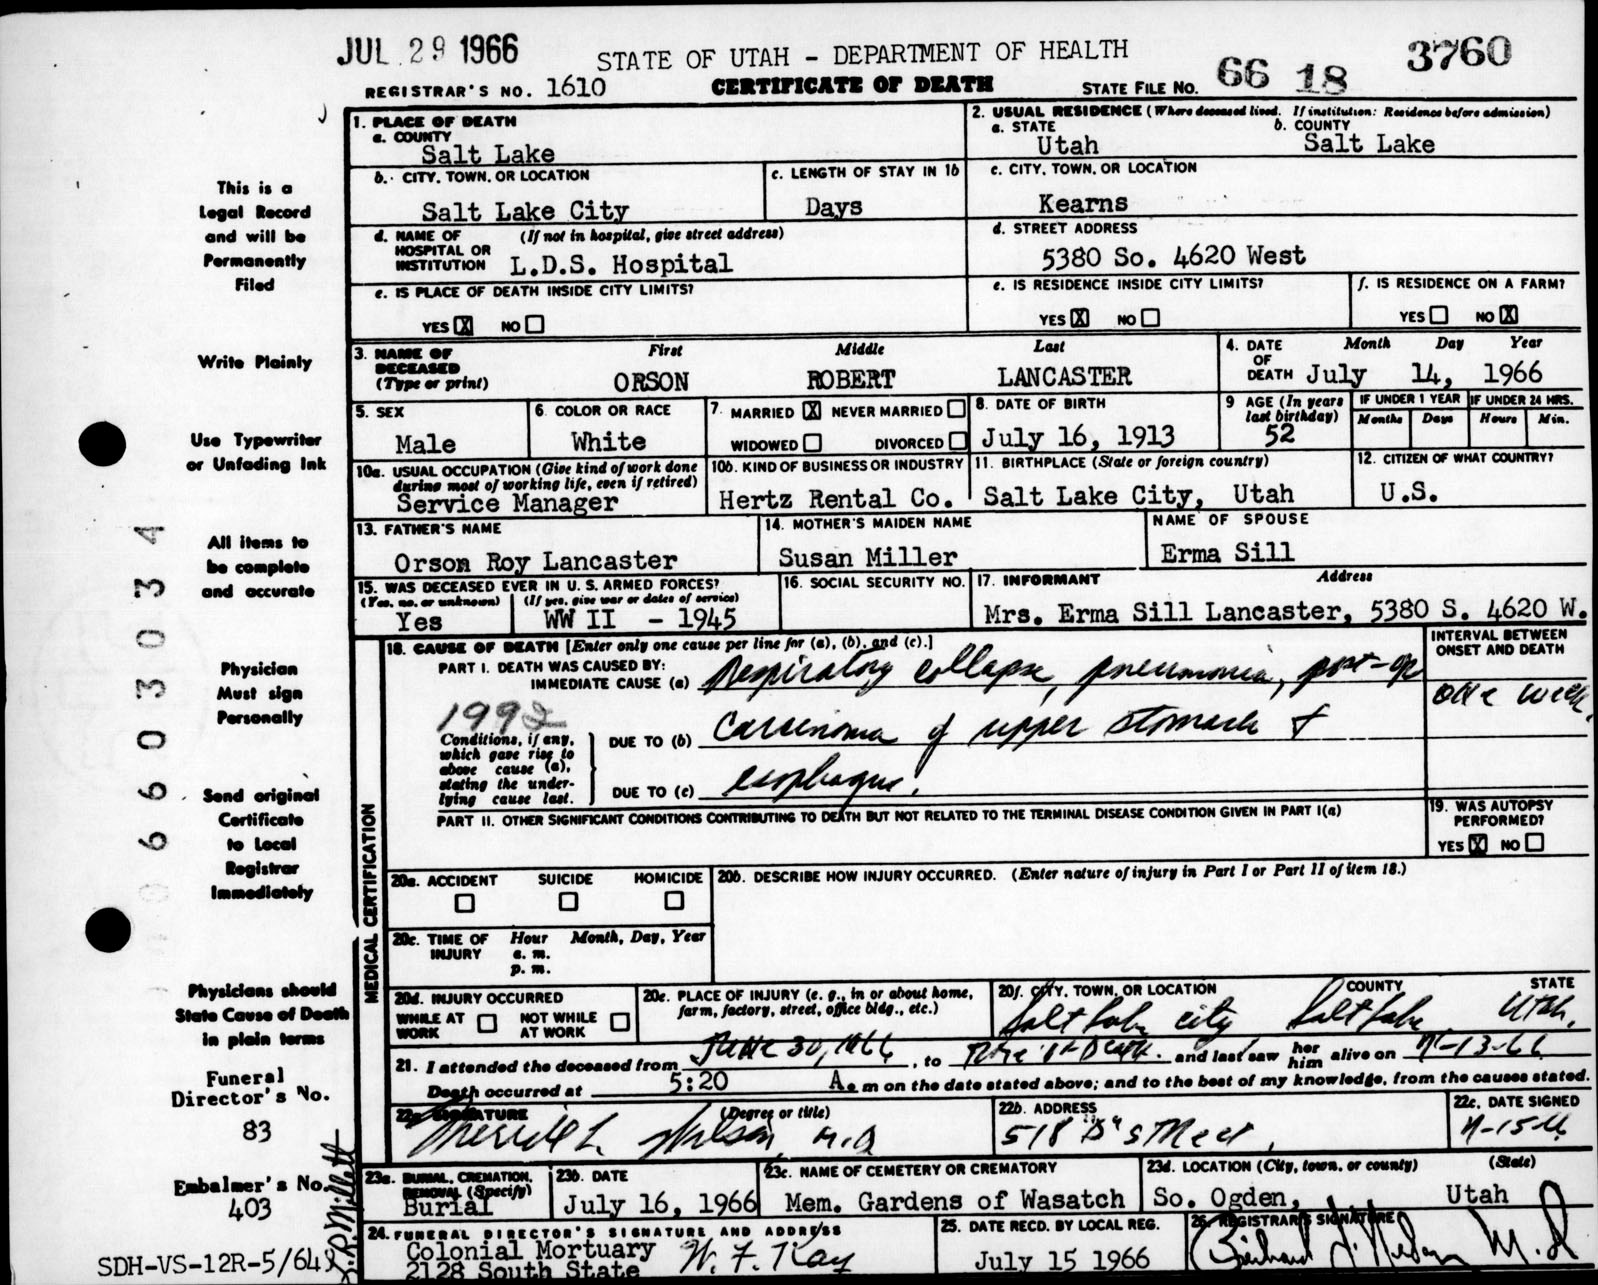 JUL 29 1966
STATE OF UTAH - DEPARTMENT OF HEALTH
3760
REGISTRAR'S NO. 1610
CERTIFICATE OF DEATH
STATE FILE NO. 66 18
1. PLACE OF DEATH
a. COUNTY
Salt Lake
2. USUAL RESIDENCE (Where deceased lived. If institution: Residence before admission)
a. STATE b. COUNTY
Utah Salt Lake
b. CITY, TOWN, OR LOCATION
Salt Lake City
c. LENGTH OF STAY IN 1b
Days
c. CITY, TOWN, OR LOCATION
Kearns
d. NAME OF HOSPITAL OR INSTITUTION (If not in hospital, give street address)
L.D.S. Hospital
d. STREET ADDRESS
5380 So. 4620 West
e. IS PLACE OF DEATH INSIDE CITY LIMITS?
YES X NO
e. IS RESIDENCE INSIDE CITY LIMITS?
YES X NO
f. IS RESIDENCE ON A FARM?
YES NO X
3. NAME OF DECEASED (Type or print)
First Middle Last
ORSON ROBERT LANCASTER
4. DATE OF DEATH Month Day Year
July 14, 1966
5. SEX
Male
6. COLOR OR RACE
White
7. MARRIED X NEVER MARRIED
WIDOWED DIVORCED
8. DATE OF BIRTH
July 16, 1913
9 AGE (In years last birthday)
52
IF UNDER 1 YEAR
Months Days
IF UNDER 24 HRS.
Hours Min.
10a. USUAL OCCUPATION (Give kind of work done during most of working life, even if retired)
Service Manager
10b. KIND OF BUSINESS OR INDUSTRY
Hertz Rental Co.
11. BIRTHPLACE (State or foreign country)
Salt Lake City, Utah
12. CITIZEN OF WHAT COUNTRY?
U.S.
13. FATHER'S NAME
Orson Roy Lancaster
14. MOTHER'S MAIDEN NAME
Susan Miller
NAME OF SPOUSE
Erma Sill
15. WAS DECEASED EVER IN U. S. ARMED FORCES?
(Yes, no, or unknown) (If yes, give war or dates of service)
Yes WW II - 1945
16. SOCIAL SECURITY NO.
17. INFORMANT Address
Mrs. Erma Sill Lancaster, 5380 S. 4620 W.
MEDICAL CERTIFICATION
18. CAUSE OF DEATH [Enter only one cause per line for (a), (b), and (c).]
INTERVAL BETWEEN ONSET AND DEATH
PART I. DEATH WAS CAUSED BY:
IMMEDIATE CAUSE (a) Respiratory collapse, pneumonia, post-op
one week.
1992
Conditions, if any, which gave rise to above cause (a), stating the underlying cause last.
DUE TO (b) Carcinoma of upper stomach &
DUE TO (c) esophagus.
PART II. OTHER SIGNIFICANT CONDITIONS CONTRIBUTING TO DEATH BUT NOT RELATED TO THE TERMINAL DISEASE CONDITION GIVEN IN PART I(a)
19. WAS AUTOPSY PERFORMED?
YES X NO
20a. ACCIDENT SUICIDE HOMICIDE
20b. DESCRIBE HOW INJURY OCCURRED. (Enter nature of injury in Part I or Part II of item 18.)
20c. TIME OF INJURY Hour Month, Day, Year
a. m.
p. m.
20d. INJURY OCCURRED
WHILE AT WORK NOT WHILE AT WORK
20e. PLACE OF INJURY (e. g., in or about home, farm, factory, street, office bldg., etc.)
20f. CITY, TOWN, OR LOCATION COUNTY STATE
Salt Lake City Salt Lake Utah.
21. I attended the deceased from June 30, 1966, to Time of Death. and last saw her him alive on 7-13-66
Death occurred at 5:20 A. m on the date stated above; and to the best of my knowledge, from the causes stated.
22a. SIGNATURE (Degree or title)
Merrill L. Wilson, M.D
22b. ADDRESS
518 "D" Street,
22c. DATE SIGNED
7-15-66
23a. BURIAL, CREMATION, REMOVAL (Specify)
Burial
23b. DATE
July 16, 1966
23c. NAME OF CEMETERY OR CREMATORY
Mem. Gardens of Wasatch
23d. LOCATION (City, town, or county) (State)
So. Ogden, Utah
24. FUNERAL DIRECTOR'S SIGNATURE AND ADDRESS
Colonial Mortuary W. F. Kay
2128 South State
25. DATE RECD. BY LOCAL REG.
July 15 1966
26. REGISTRAR'S SIGNATURE
M.D
This is a
Legal Record
and will be
Permanently
Filed
Write Plainly
Use Typewriter
or Unfading Ink
All items to
be complete
and accurate
Physician
Must sign
Personally
Send original
Certificate
to Local
Registrar
Immediately
Physicians should
State Cause of Death
in plain terms
Funeral
Director's No.
83
Embalmer's No.
403
SDH-VS-12R-5/64
Millett
6603034